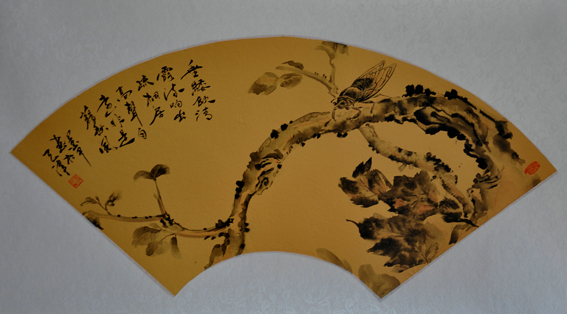 垂緌飲清
露流响出
疏桐居
高聲自
遠非是
藉秋風